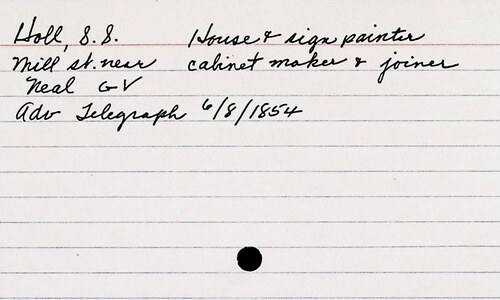 Holl, S.S. House & sign painter
Mill st. near cabinet maker & joiner
Neal GV
Adv Telegraph 6/8/1854